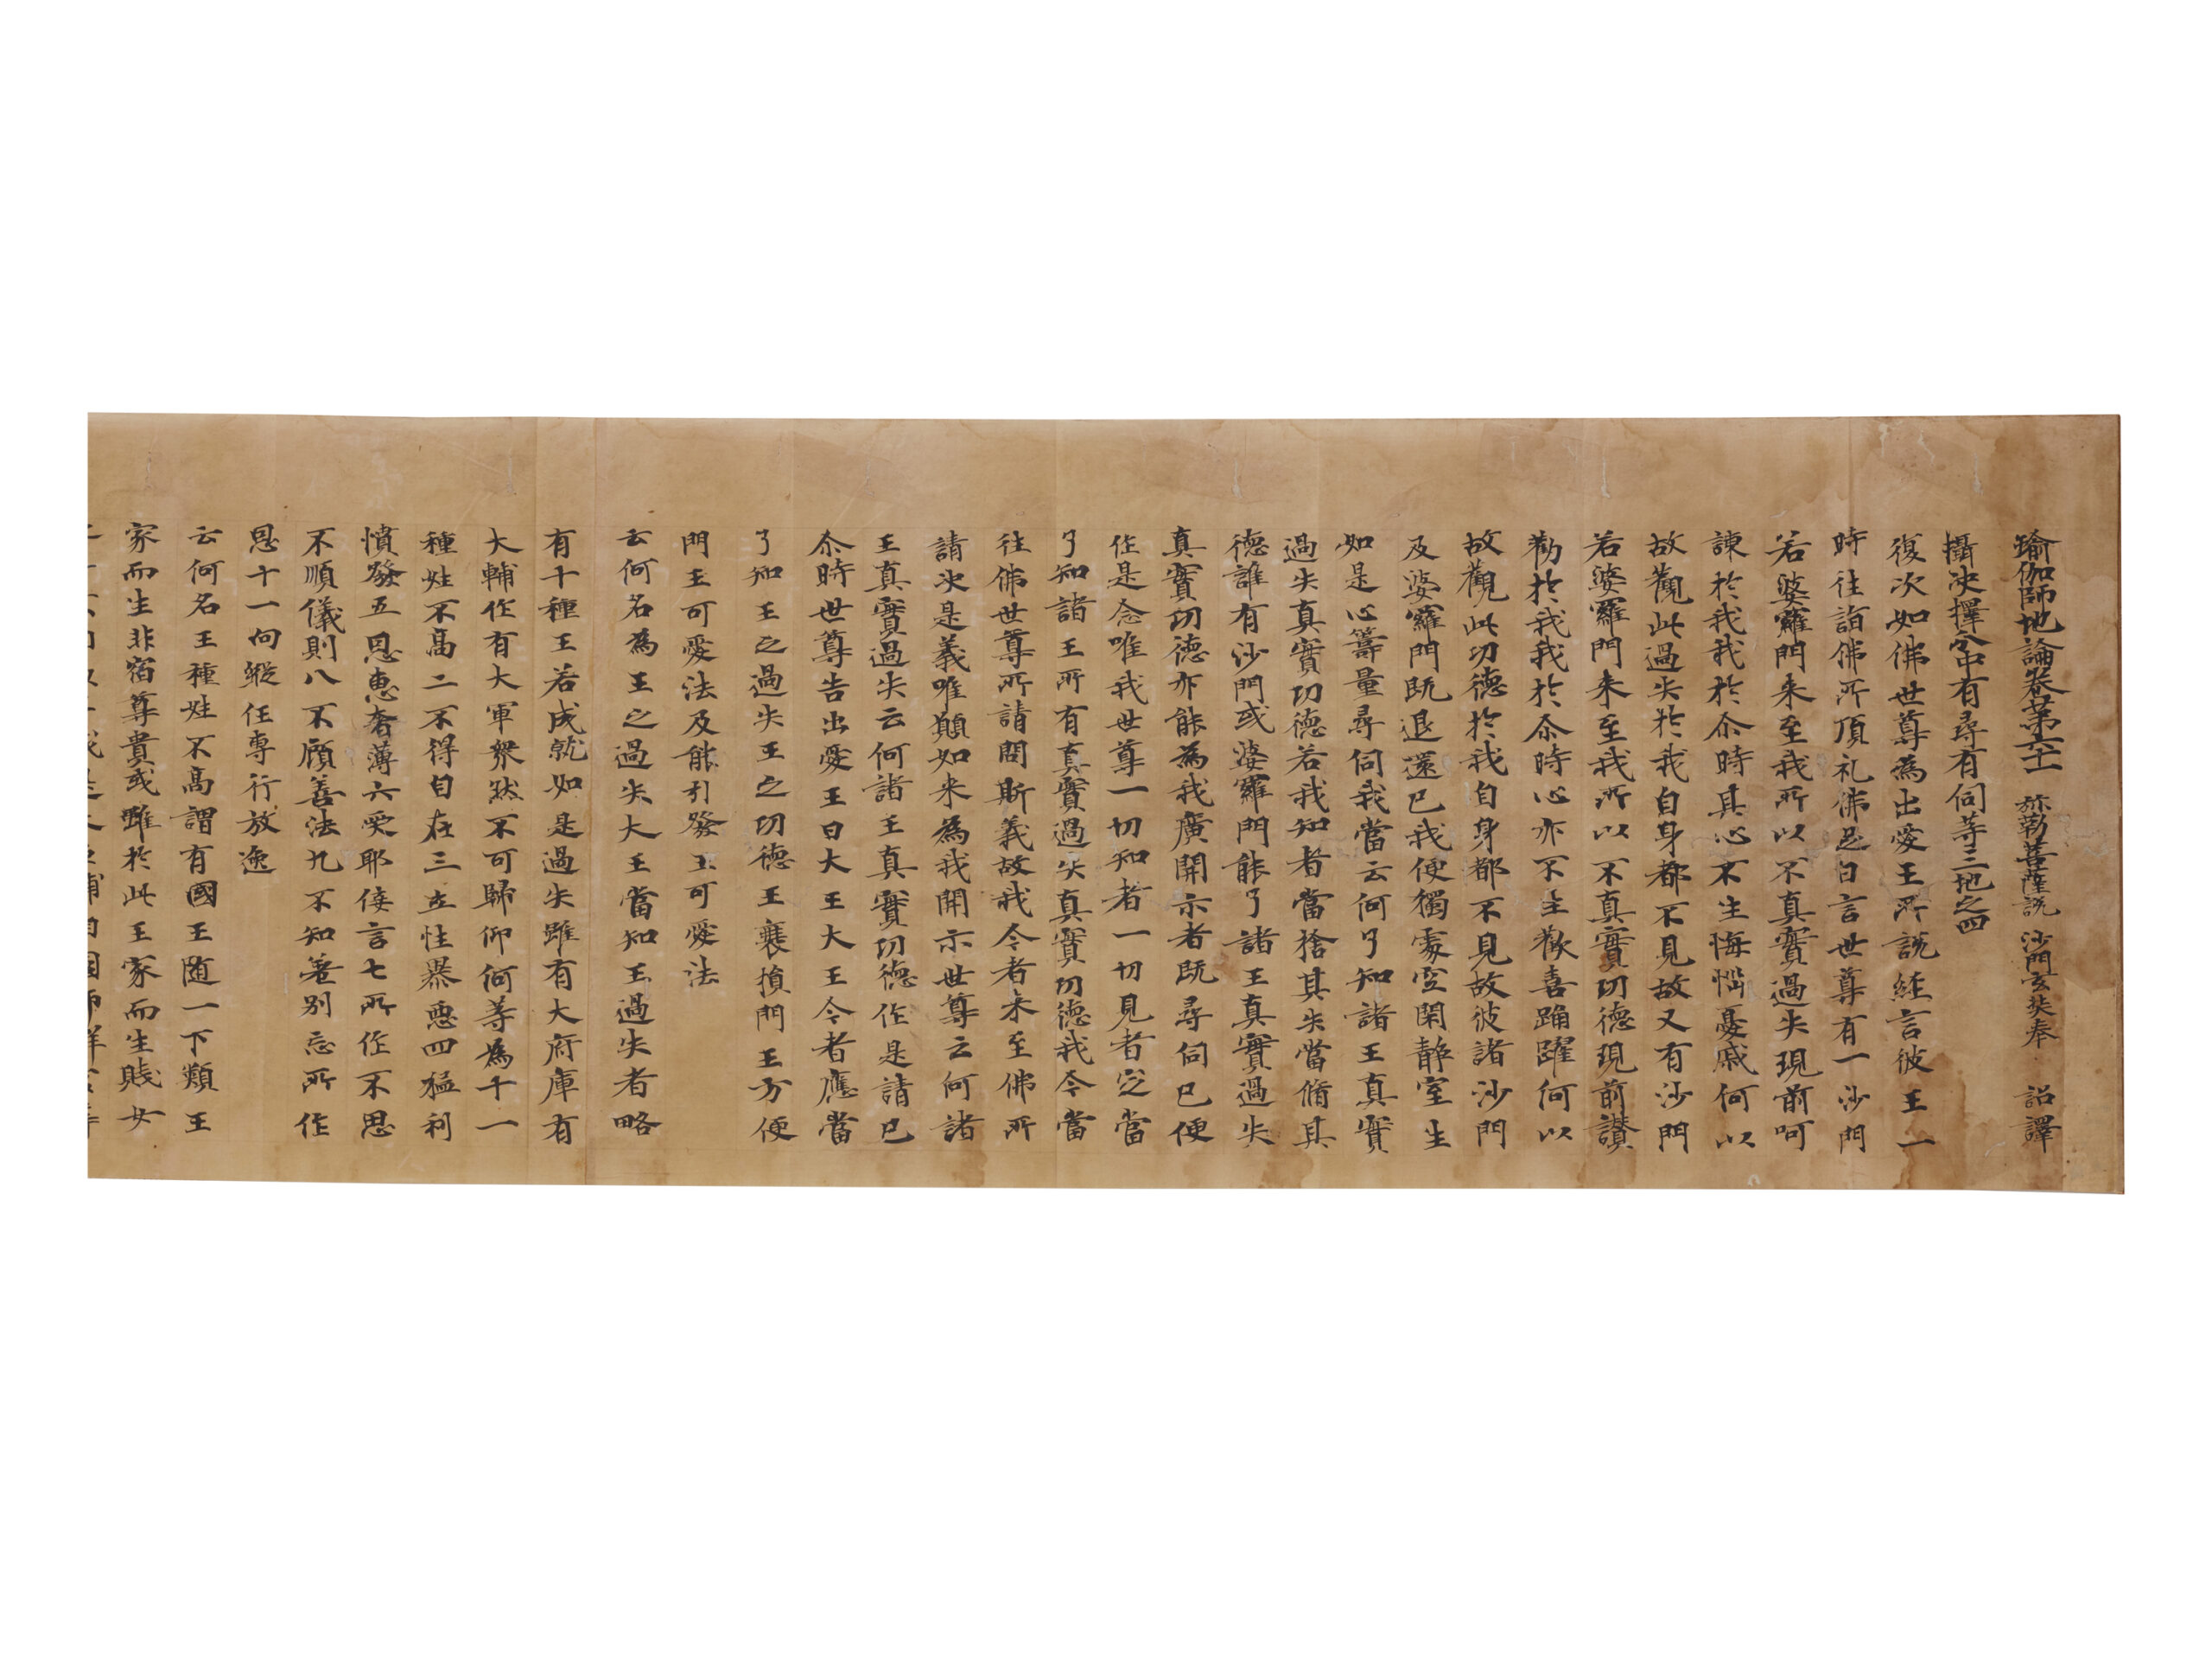 瑜伽師地論卷苐六十一 弥勒菩薩説 沙門玄奘奉 詔譯
攝决擇分中有尋有伺等三地之四
復次如佛世尊為出愛王所說經言彼王一
時往詣佛所頂礼佛足白言世尊有一沙門
若婆羅門来至我所以不真實過失現前呵
諫於我我於尒時其心不生悔惱憂慼何以
故觀此過失於我自身都不見故又有沙門
若婆羅門来至我所以不真實功德現前讃
勸於我我於尒時心亦不生歡喜踊躍何以
故觀此功德於我自身都不見故彼諸沙門
及婆羅門既退還已我便獨處空閑静室生
如是心籌量尋伺我當云何了知諸王真實
過失真實功德若我知者當捨其失當脩其
德誰有沙門或婆羅門能了諸王真實過失
真實功德亦能為我廣開示者既尋伺已便
作是念唯我世尊一切知者一切見者定當
了知諸王所有真實過失真實功德我今當
往佛世尊所請問斯義故我今者来至佛所
請决是義唯願如来為我開示世尊云何諸
王真實過失云何諸王真實功德作是請已
尒時世尊告出愛王曰大王大王今者應當
了知王之過失王之功德王衰損門王方便
門王可愛法及能引發王可愛法
云何名為王之過失大王當知王過失者略
有十種王若成就如是過失雖有大府庫有
大輔作有大軍衆然不可歸仰何等為十一
種姓不髙二不得自在三立性暴惡四猛利
憤發五恩惠奢薄六受耶佞言七所作不思
不順儀則八不顧善法九不知差别忘所作
恩十一向縱任專行放逸
云何名王種姓不髙謂有國王随一下類王
家而生非宿尊貴或雖於此王家而生賎女